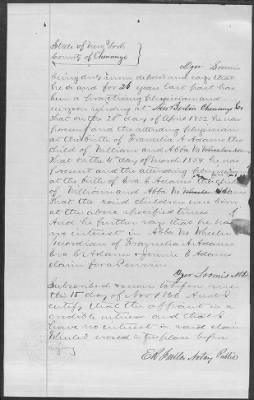 State of New York
County of Chenango
Dyer Loomis
being duly sworn deposes and says that
he is and for 26 years last past has
been a practising physician and
surgeon residing at New Berlin Chenango Co
that on the 28 day of April 1852 he was
present and the attending physician
at the birth of A Adams the
child of William and Abba M
that on the 4 day of March 1854 he was
present and the attending physician
at the birth of Eva E Adams
of William and Abba M
that the said children were born
at the above specified times
And he further says that he has
no interest in Abba M Wheeler
Guardian of A. Adams
Eva E Adams & Jennie E Adams
claim for a Pension
Dyer Loomis M.D.
Subscribed & sworn before
me the 15 day of Nov 1866 And I
certify that the affiant is a
credible witness and that I
have no interest in said claim
Wheeler erased in two places before
signing
Notary Public